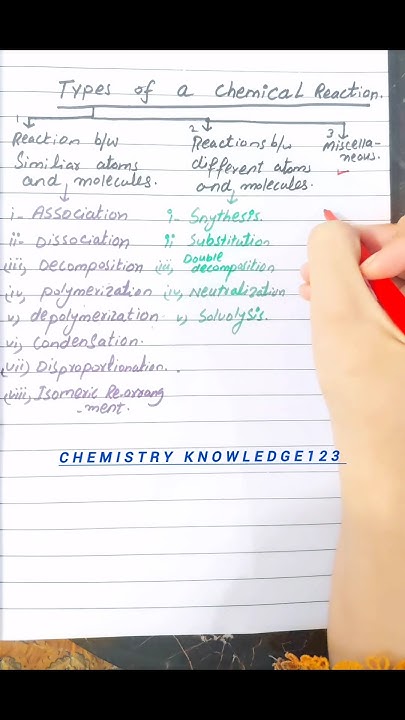 Types of a Chemical Reaction.
1
Reaction b/w
Similiar atoms
and molecules.
i- Association
ii- Dissociation
iii, Decomposition
iv, polymerization
v) depolymerization
vi) Condensation.
vii) Disproportionation.
viii, Isomeric Rearrang
-ment.
2
Reactions b/w
different atoms
and molecules.
i- Snythesis.
ii Substitution
iii, Double
decomposition
iv, Neutralization
v) Solvolysis.
3
Miscella-
neous.
CHEMISTRY KNOWLEDGE123